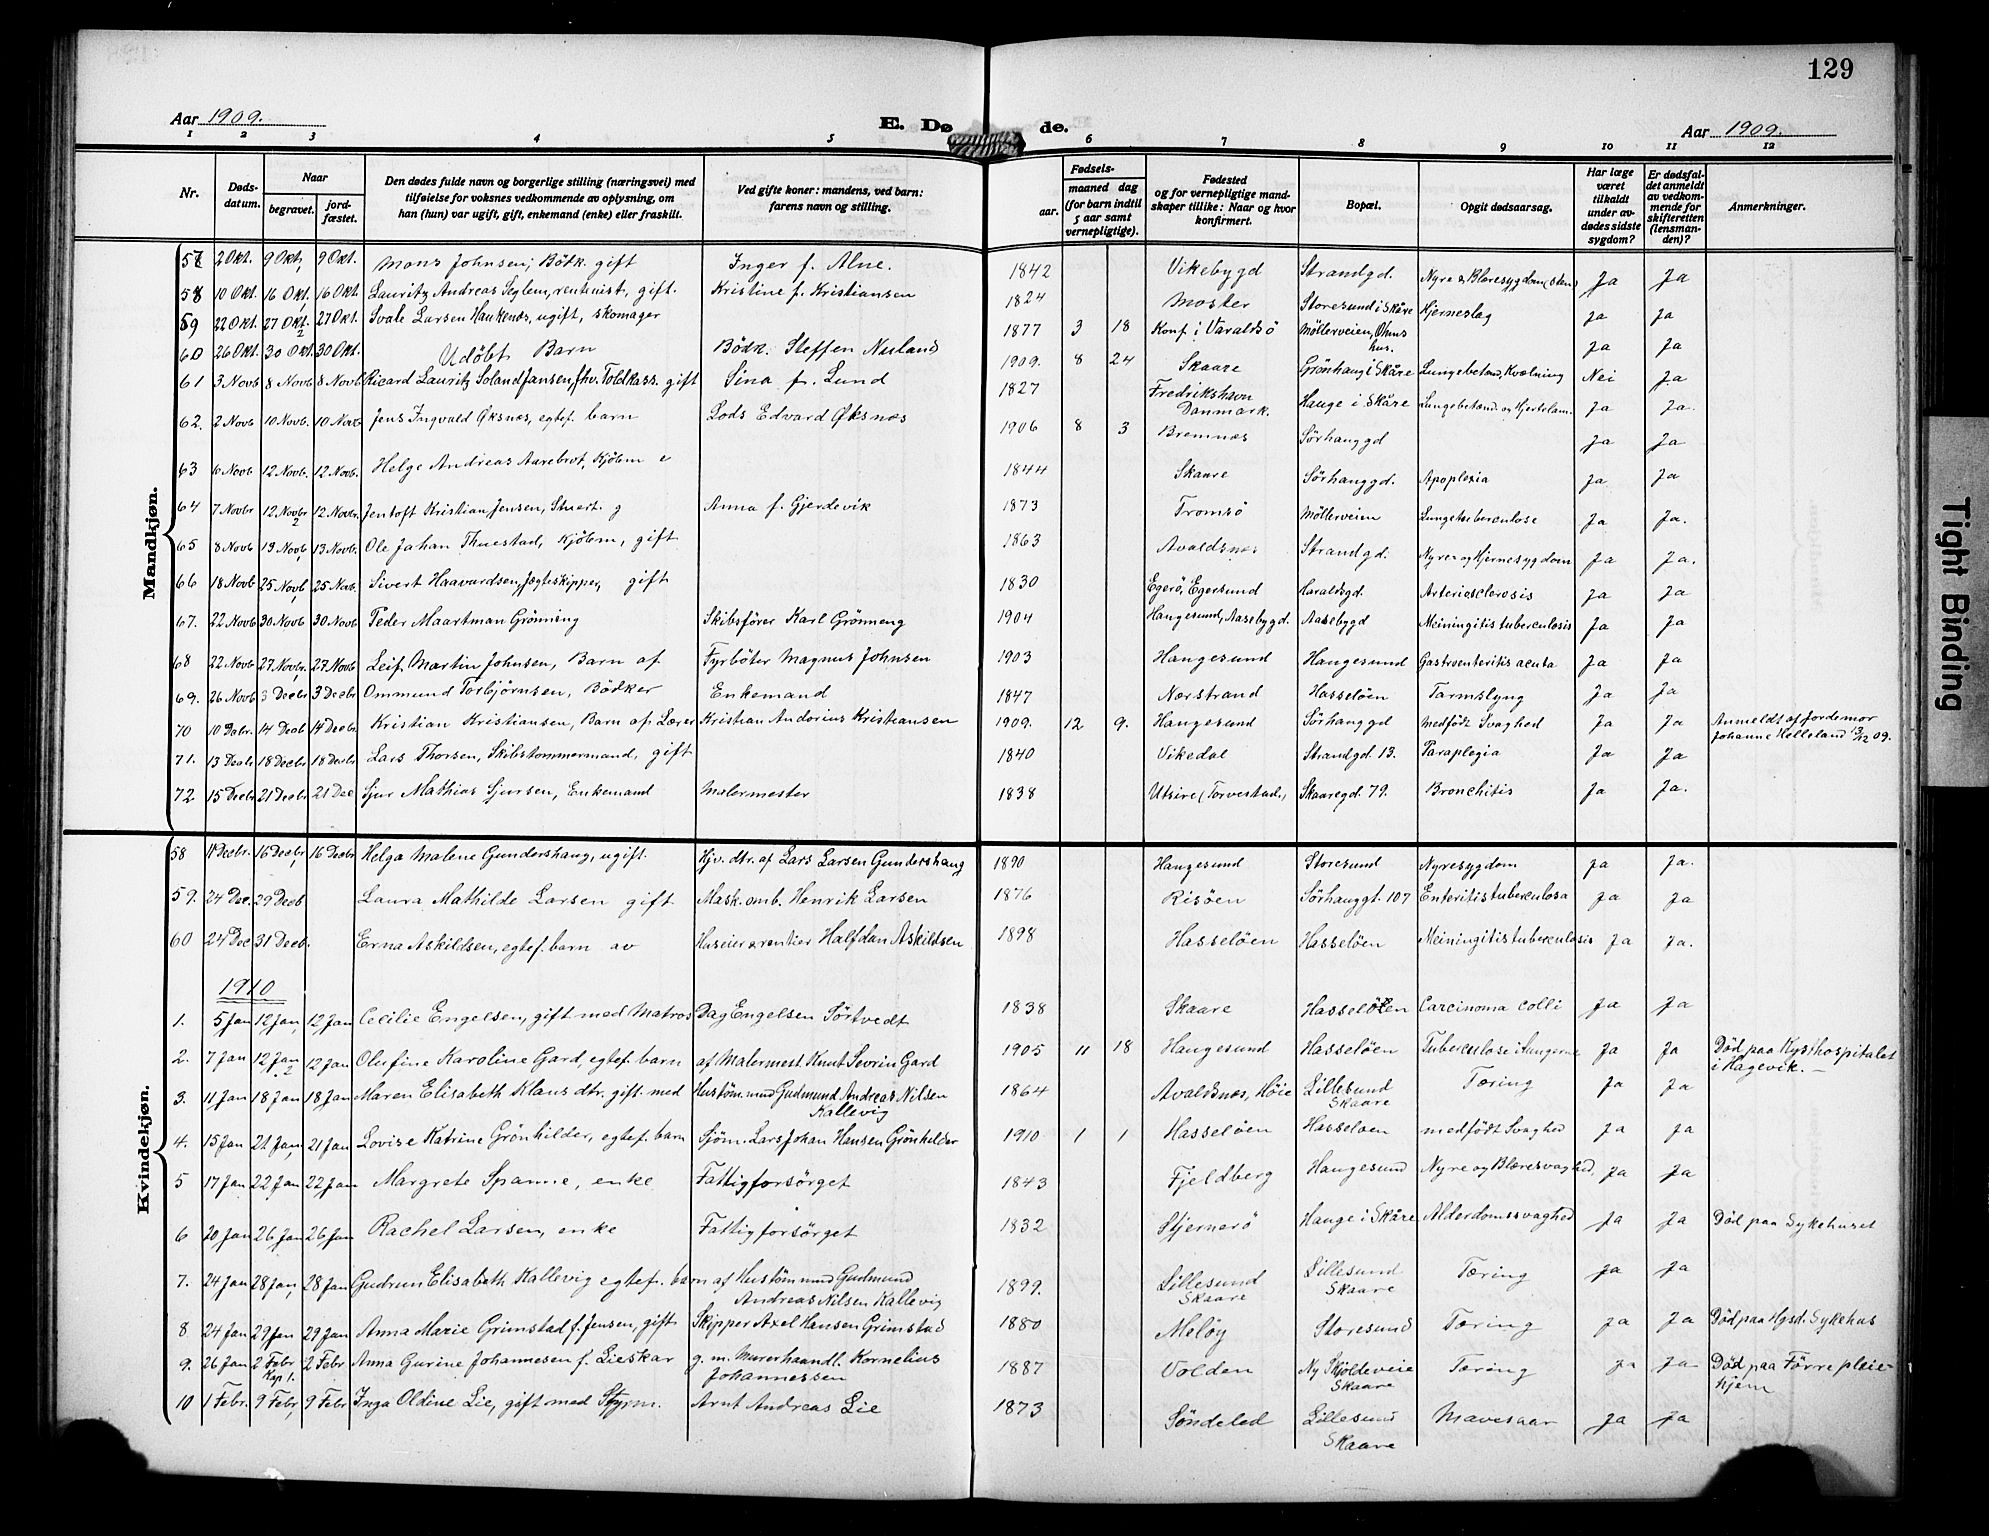 129
Aar 1909. E. Dø de. Aar 1909.
1 2 3 4 5 6 7 8 9 10 11 12
Nr.
Døds-datum.
Naar
begravet.
jord-fæstet.
Den dødes fulde navn og borgerlige stilling (næringsvei) med tilføielse for voksnes vedkommende av oplysning, om han (hun) var ugift, gift, enkemand (enke) eller fraskilt.
Ved gifte koner: mandens, ved barn: farens navn og stilling.
Fødsels-
aar.
maaned dag (for barn indtil 5 aar samt vernepligtige).
Fødested og for vernepligtige mandskaper tillike: Naar og hvor konfirmert.
Bopæl.
Opgit dødsaarsag.
Har læge været tilkaldt under avdødes sidste sygdom?
Er dødsfaldet anmeldt av vedkommende for skifteretten (lensmanden)?
Anmerkninger.
Mandkjøn.
57 2 Okt. 9 Okt. 9 Okt. Mons Johnsen, Bödk. gift Inger f. Alne. 1842 Vikebygd Strandgd. Nyre & Blæresygdom (sten) Ja Ja
58 10 Okt. 16 Okt. 16 Okt Lauritz Andreas Seglem, rentenist, gift. Kristine f. Kristiansen 1824 Moster Storesund i Skåre Hjerneslag Ja Ja
59 22 Okt. 27 Okt. 27 Okt. Svale Larsen Haukenæs, ugift, skomager 1877 3 18 Konf. i Varaldsö Möllerveien, hus. Ja Ja
60 26 Okt. 30 Okt. 30 Okt. Udöbt Barn Bödk. Steffen Nesland 1909. 8 24 Skaare Grönhaug i Skåre Lungebetænd, Kvælning Nei Ja
61 3 Novb 8 Novb 8 Novb Ricard Lauritz Soland Jansen, fhv. Toldkass. gift Sina f. Lund 1827 Fredrikshavn Danmark. Hauge i Skåre Lungebetænd. og Hjertelam. Ja Ja.
62. 2 Novb 10 Novb. 10 Novb Jens Ingvald Øksnæs, egtef. barn Lods Edvard Øksnæs 1906 8 3 Bremnæs Sörhauggd Ja Ja
63 6 Novb 12 Novb. 12 Novb. Helge Andreas Aarebrot, Kjöbm e 1844 Skaare Sörhauggd. Apoplexia Ja Ja
64 7 Novbr 12 Novbr 12 Novbr. Jentoft Kristian Jensen, Stuert. g Anna f. Gjerdevik 1873 Tromsö Möllerveien Lungetuberculose Ja Ja.
65 8 Novb 13 Novb 13 Novbr. Ole Johan Thuestad, Kjöbm, gift 1863 Avaldsnæs Strandgd. Nyre og Hjernesygdom Ja Ja.
66 18 Novb 25 Novb 25 Novb. Sivert Haavardsen, Jægteskipper, gift 1830 Egerö, Egersund Haraldsgd. Arteriosclerosis Ja Ja
67. 22 Novb 30 Novb 30 Novb Peder Maartman Grönneng Skibsförer Karl Grönneng 1904 Haugesund, Aasebygd. Aasebygd Meiningitis tuberculosis Ja Ja
68 22 Novb 27 Novbr. 27 Novb Leif Martin Johnsen, Barn af Fyrböter Magnus Johnsen 1903 Haugesund Haugesund Gastroenteritis acuta Ja Ja
69. 26 Novb 3 Decbr 3 Decbr Ommund Torbjörnsen, Bödker Enkemand 1847 Nærstrand Hasselöen Tarmslyng Ja Ja
70 10 Debr. 14 Decb 14 Decbr. Kristian Kristiansen, Barn af Lærer Kristian Andorius Kristiansen 1909. 12 9. Haugesund Sörhauggd medfödt Svaghed Ja Ja Anmeldt af Jordemor Johanne Helleland 13/12 09.
71. 13 Decbr 18 Decbr 18 Decbr Lars Thorsen, Skibstømmermand, gift 1840 Vikedal Strandgd. 13. Paraplegia Ja Ja
72 15 Decbr 21 Decbr 21 Dec Sjur Mathias Sjursen, Enkemand Malermester 1838 Utsire (Torvestad,) Skaaregd. 79. Bronchitis Ja Ja.
Kvindekjøn.
58 11 Decbr. 16 Decbr 16 Decbr Helga Malene Gundershaug, ugift. Hjv. dtr. af Lars Larsen Gundershaug 1890 Haugesund Storesund Nyresygdom Ja Ja.
59. 24 Dec. 29 Decb Laura Mathilde Larsen gift Mask. omb. Henrik Larsen 1876 Risöen Sörhauggt. 107 Enteritis tuberculosa Ja Ja
60 24 Dec 31 Decb. Erna Askildsen, egtef. barn av Huseier & rentier Halfdan Askildsen 1898 Hasselöen Hasselöen Meiningitis tuberculosis Ja Ja.
1910
1. 5 Jan 12 Jan, 12 Jan Cecilie Engelsen, gift med Matros Dag Engelsen Sörtvedt 1838 Skaare Hasselöen Carcinoma colli Ja Ja
2. 7 Jan 12 Jan 12 Jan Olufine Karoline Gard, egtef. barn af Malermest. Knut Sevrin Gard 1905 11 18 Haugesund Hasselöen Tuberculose i Lungerne Ja Ja Död paa Kysthospitalet i Hagevik.
3. 11 Jan 18 Jan 18 Jan Maren Elisabeth Klausdtr. gift med Hustöm.mnd Gudmund Andreas Nilsen Kallevig 1864 Avaldsnæs, Höie Lillesund Skaare Tæring Ja Ja
4. 15 Jan 21 Jan, 21 Jan Lovise Katrine Grönhilder, egtef. barn Sjöm. Lars Johan Hansen Grönhilder 1910 1 1 Hasselöen Hasselöen medfödt Svaghed Ja Ja
5 17 Jan 22 Jan 22 Jan Margrete Spanne, enke Fattigforsörget 1843 Fjeldberg Haugesund Nyre og Blæresvaghed, Ja Ja
6 20 Jan 26 Jan 26 Jan Rachel Larsen, enke Fattigforsörget 1832 Stjernerö Hauge i Skåre Alderdomssvaghed Ja Ja Död paa Sykehuset
7. 24 Jan 28 Jan, 28 Jan Gudrun Elisabeth Kallevig egtef. barn af Hustöm.mnd Gudmund Andreas Nilsen Kallevig 1899. Lillesund Skaare Lillesund Skaare Tæring Ja Ja
8 24 Jan 29 Jan 29 Jan Anna Marie Grimstad f. Jensen, gift Skipper Axel Hansen Grimstad 1880 Meløy Storesund Tæring Ja Ja Död paa Hgsd. Sykehus
9. 26 Jan 2 Febr Kap 1. 2 Febr Anna Gurine Johannesen f. Lieskar g. m. Murerhaandl. Kornelius Johannessen 1887 Volden Ny Skjoldeveie Skaare Tæring Ja Ja Död paa Förre pleiehjem
10 1 Febr. 9 Febr, 9 Febr Inga Oldine Lie, gift med Styrm. Arnt Andreas Lie 1873 Söndeled Lillesund Skaare Mavesaar Ja Ja
Tight Binding